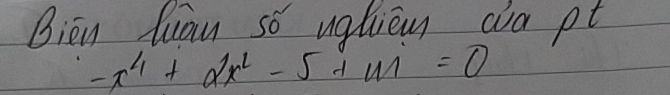 Biện luận số nghiệm của pt
-x⁴ + 2x² - 5 + m = 0